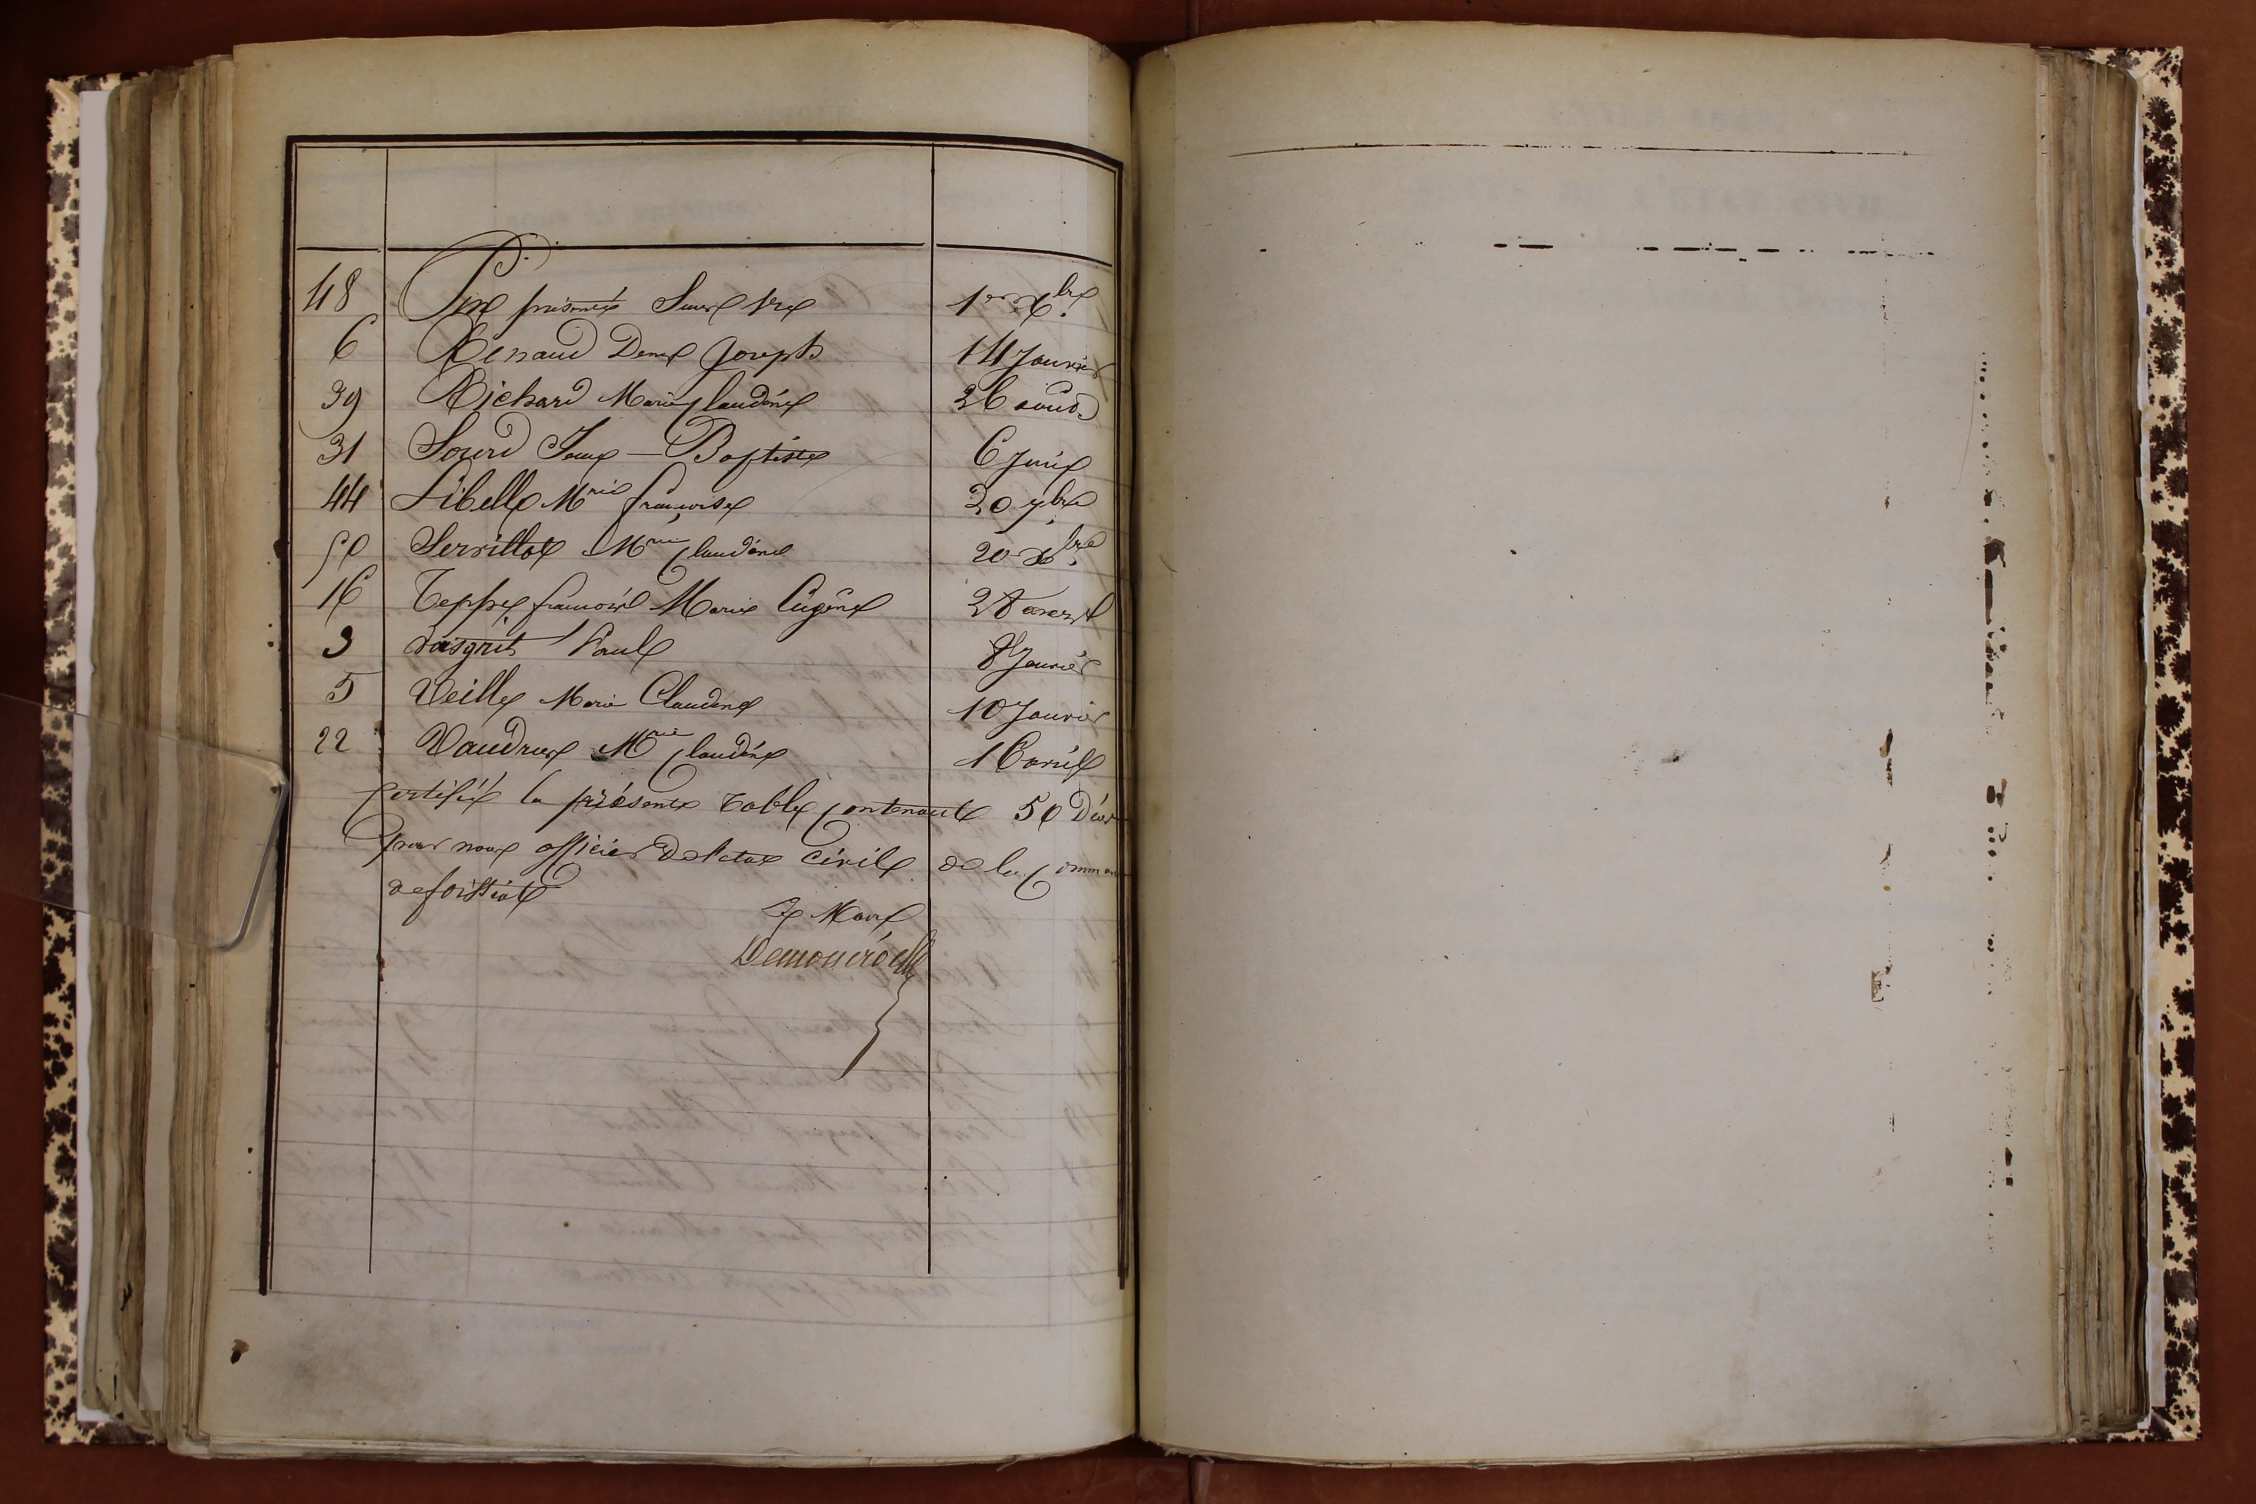 48 1er Xbre
6 Renaud Denis Joseph 14 Janvier
39 Richard Marie Claudine 26 aout
31 Sourd Jean-Baptiste 6 Juin
44 Sibelle Mrie françoise 20 9bre
50 Servillat Mrie Claudine 20 Xbre
16 Teppe françois Marie Eugène
3 Paul 8 Janvier
5 Veille Marie Claudine 10 Janvier
22 Vaudrux Mrie Claudine 16 avril
Certifié la présente Table contenant 50 Décès
par nous officier de l'état civil de la Commune
de foissiat
Le Maire